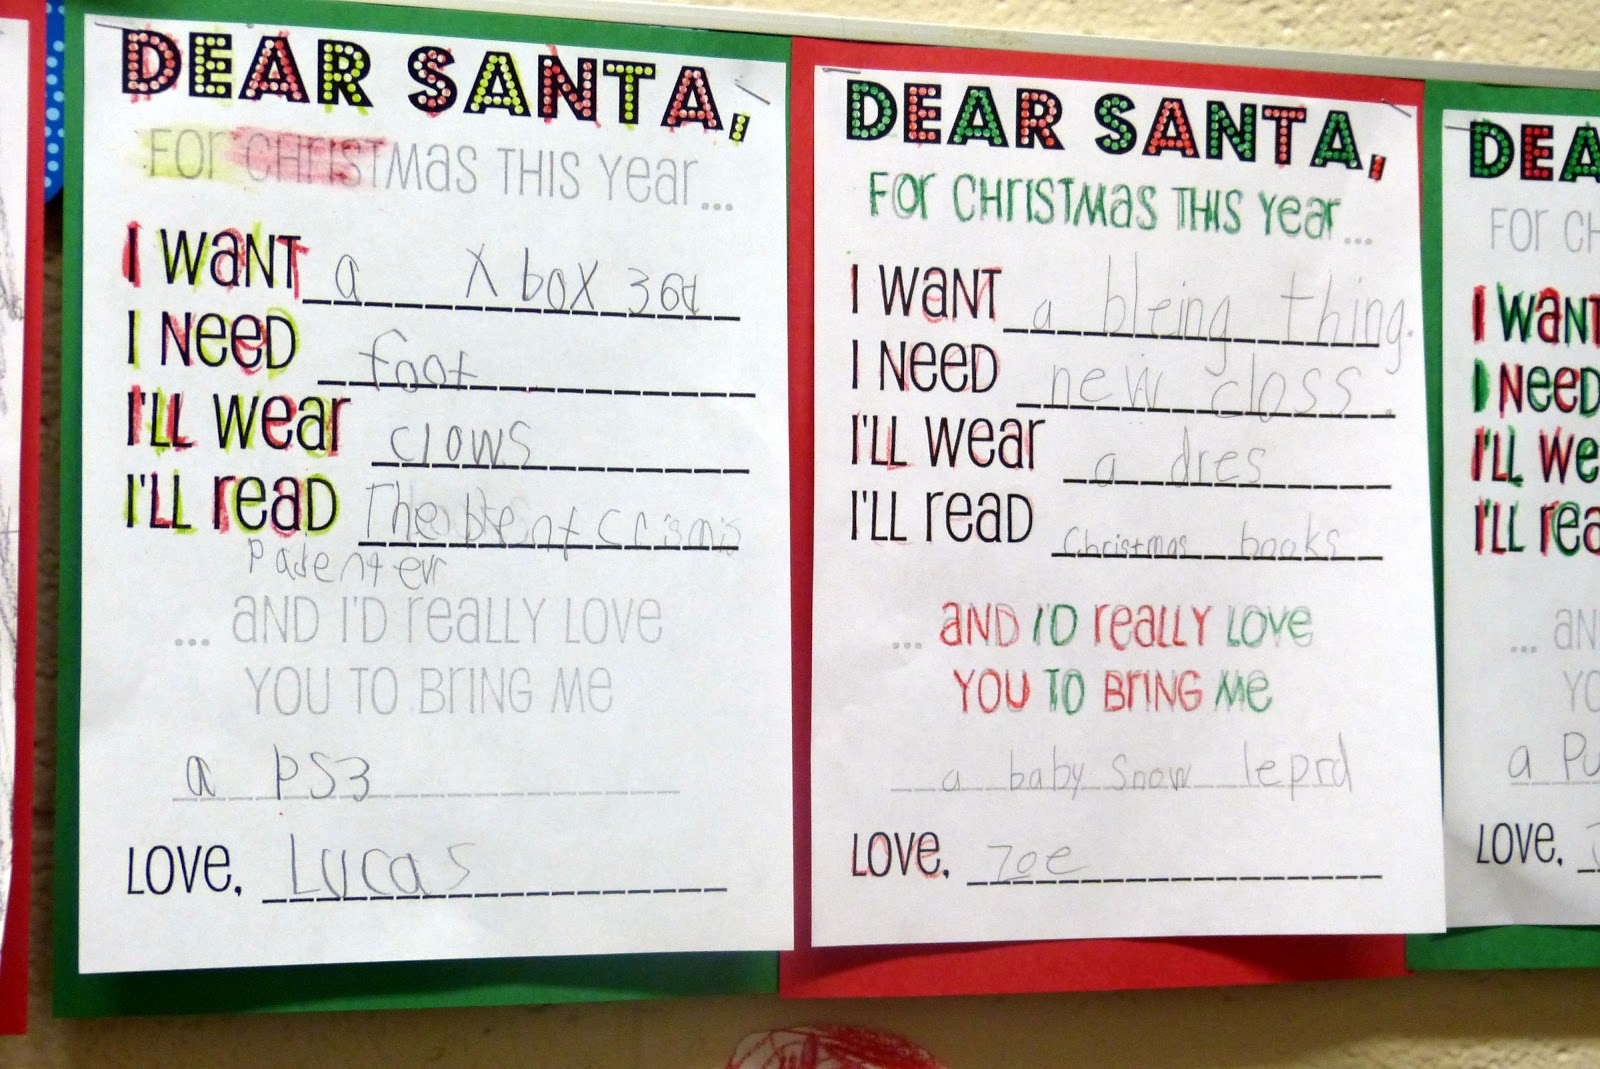 DEAR SANTA,
For CHrISTmas THIS Year...
I WaNT a X box 360
I NeeD foot
I'LL wear clows
I'LL reaD The
... aND I'D reaLLY LOVe
YOU TO BrING me
a PS3
LOVe, Lucas
DEAR SANTA,
For CHrISTmas THIS Year...
I WaNT a bleing thing.
I NeeD new closs.
I'LL wear a dres
I'LL reaD Christmas books
... aND I'D reaLLY LOVe
YOU TO BrING me
a baby snow leprd
LOVe, Zoe
DEA
For CH
I WaNT
I NeeD
I'LL we
I'LL rea
... aN
YO
a Pu
LOVe,